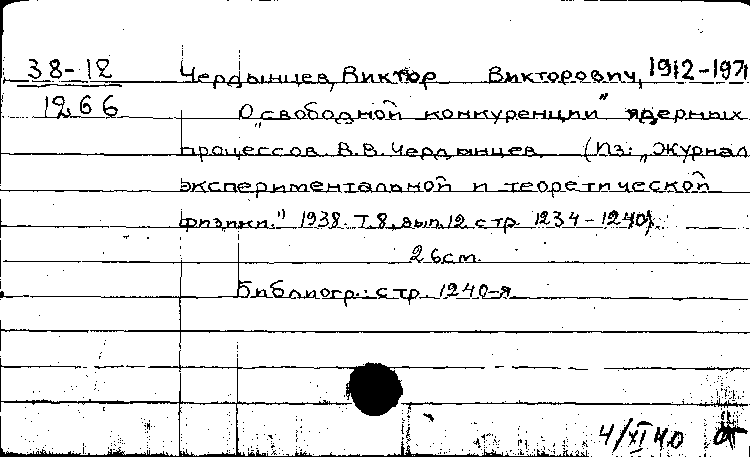 38-12
1266
Чердынцев, Виктор Викторович, 1912-1971
О „свободной конкуренции" ядерных
процессов. В.В. Чердынцев. (Из: „Журнал
экспериментальной и теоретической
физики." 1938. Т.8, вып.12 стр 1234-1240).
26см.
Библиогр.: стр. 1240-я
4/XI 40